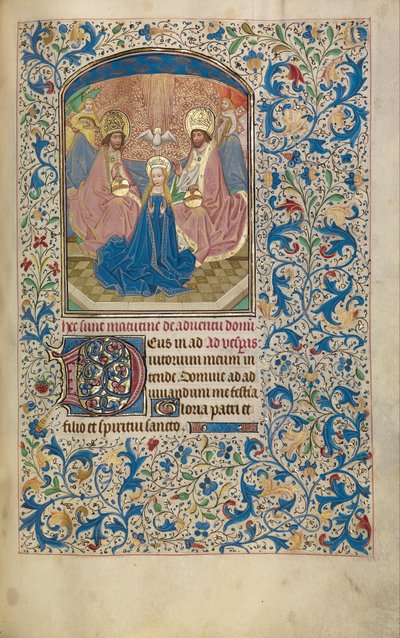 hec sunt matutine de aduentu domi
Eus in ad Ad vesperas
iutorium meum in
tende. Domine ad ad
iuuandum me festia
Gloria patri et
filio et spiritui sancto.